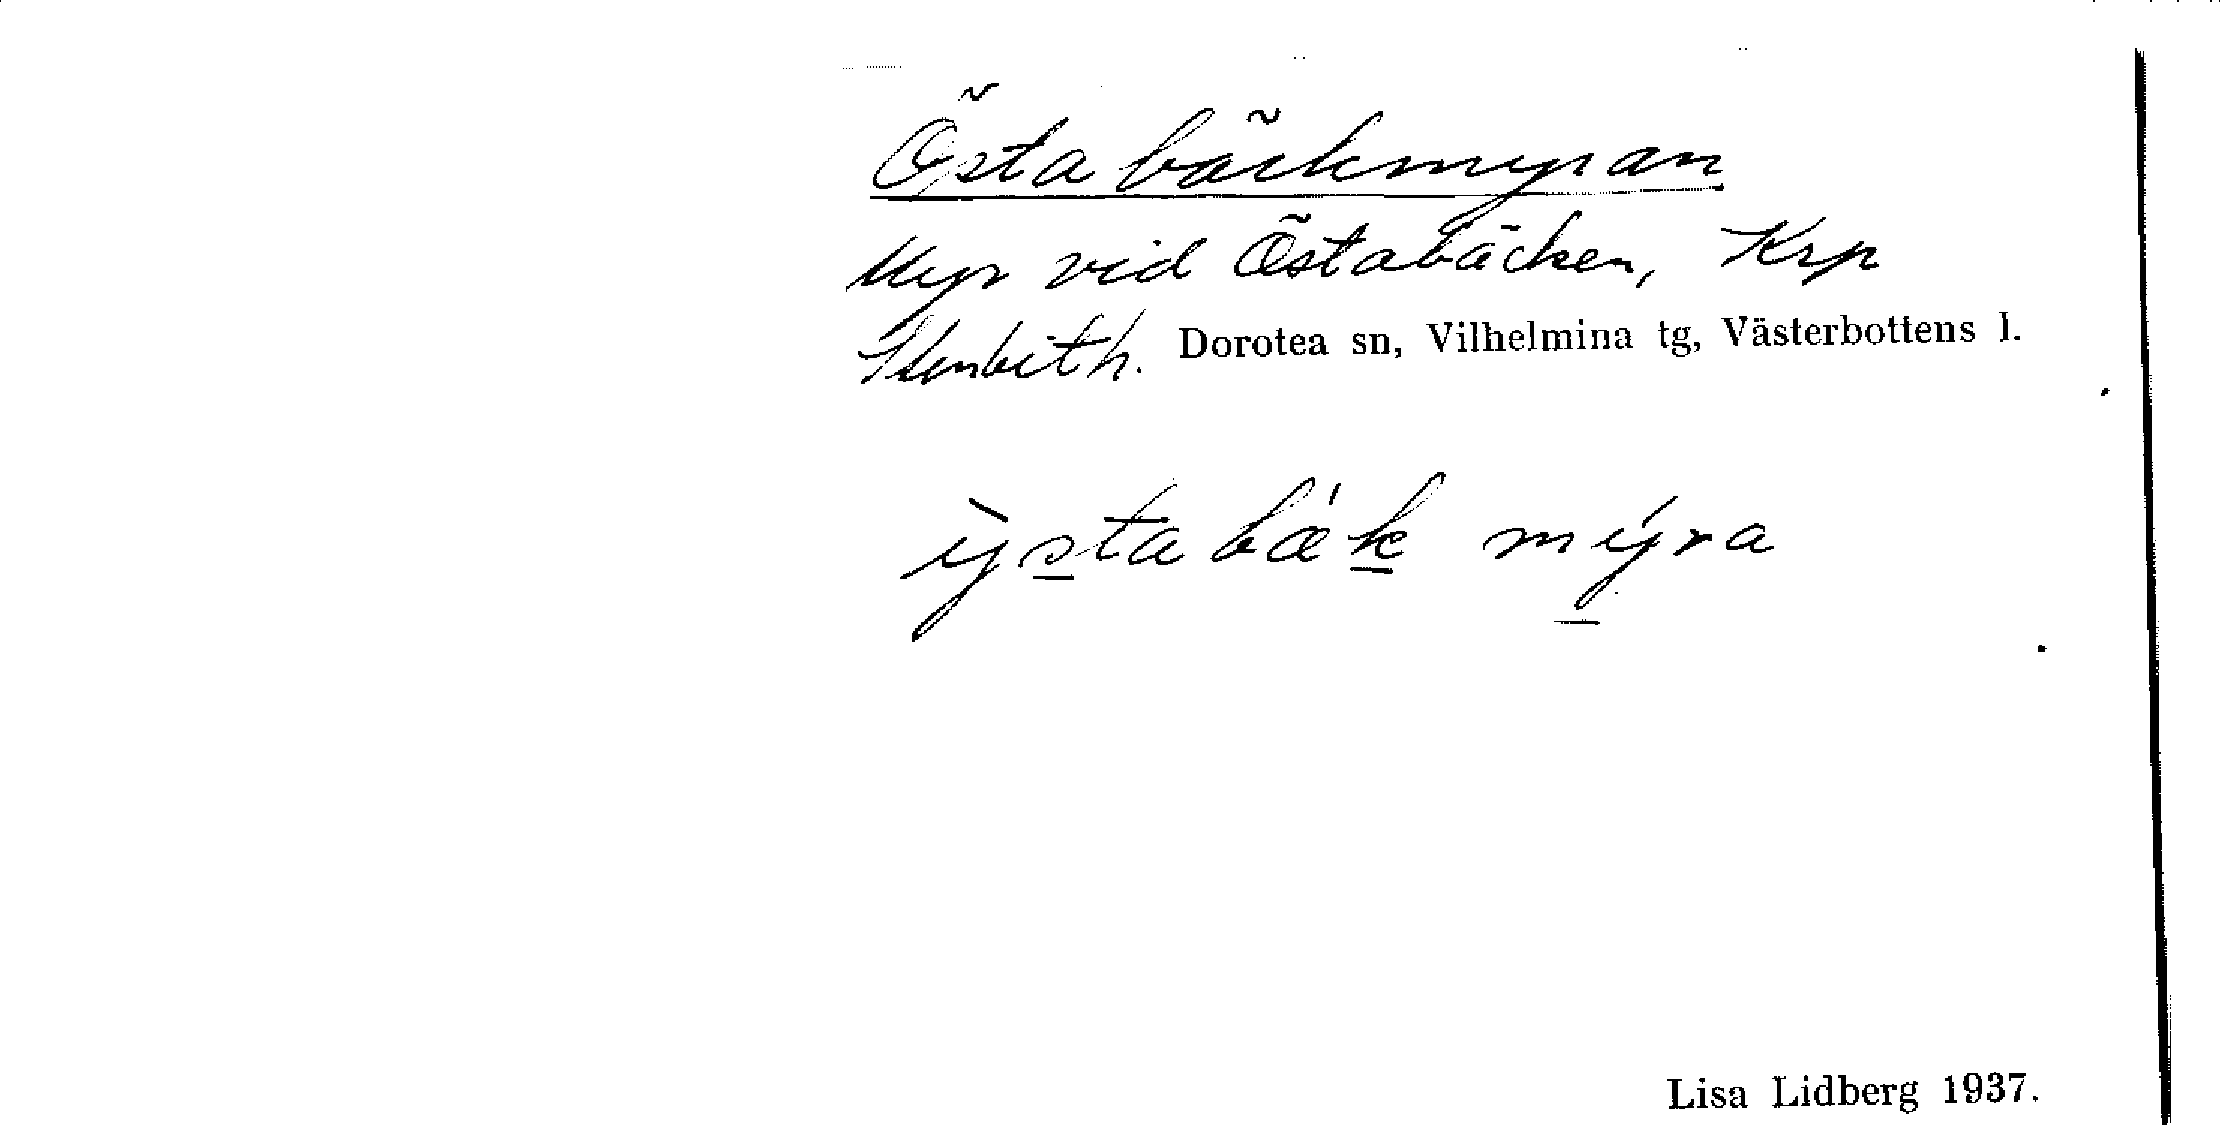 Östabäckmyran
Myr vid Östabäcken, Krp
Stenbith. Dorotea sn, Vilhelmina tg, Västerbottens l.
ỳstabæ'k mýra
Lisa Lidberg 1937.